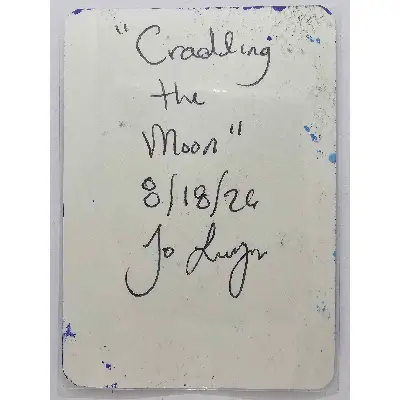 "Cradling
the
Moon"
8/18/26
Jo